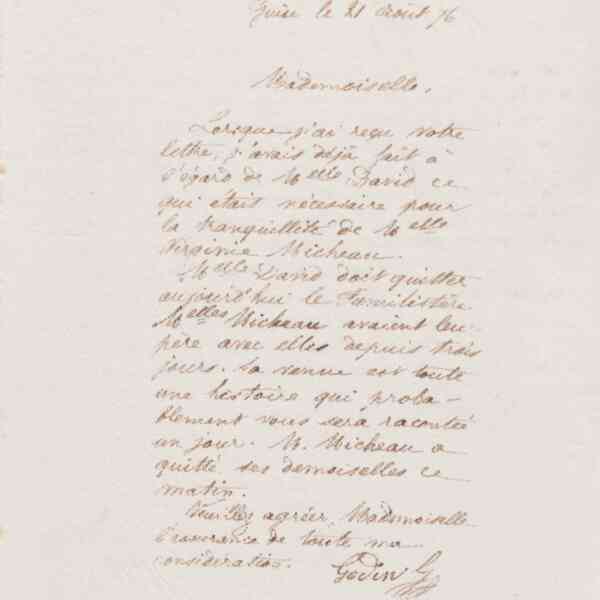 Guise le 21 Août 76
Mademoiselle,
Lorsque j'ai reçu votre
lettre, j'avais déjà fait à
l'égard de Melle David ce
qui était nécessaire pour
la tranquillité de Melle
Virginie Micheau.
Melle David doit quitter
aujourd'hui le Familistère
Melles Micheau avaient leur
père avec elles depuis trois
jours. Sa venue est toute
une histoire qui proba-
blement vous sera racontée
un jour. M. Micheau a
quitté ses demoiselles ce
matin.
Veuillez agréer, Mademoiselle
l'assurance de toute ma
considération.
Godin